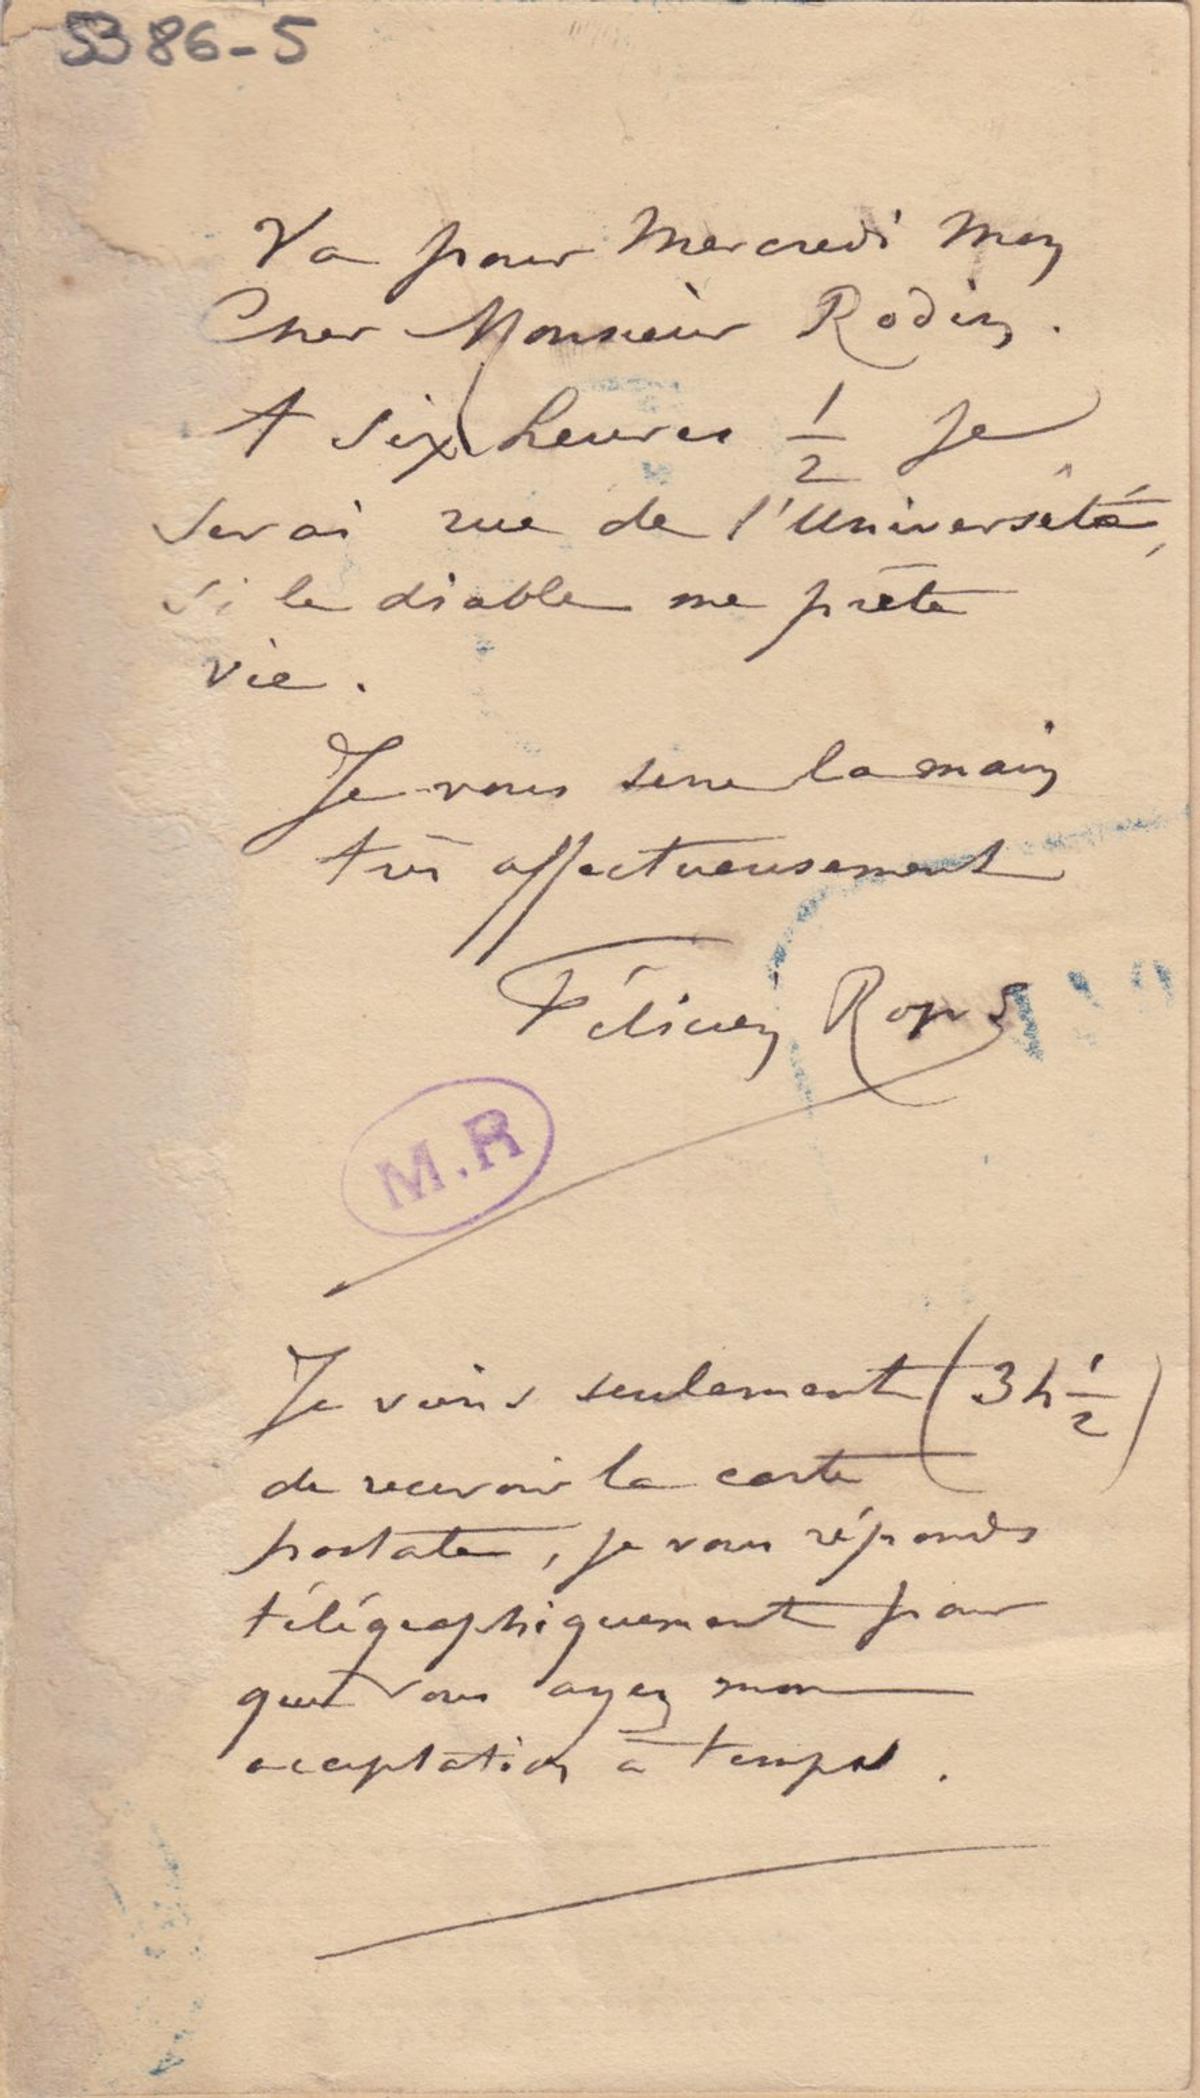 5386-5
Va pour Mercredi Mon
Cher Monsieur Rodin.
A six heures 1/2 je
serai rue de l'Université,
si le diable me prête
vie.
Je vous serre la main
très affectueusement
Félicien Rops
M.R
Je viens seulement (3h 1/2)
de recevoir la carte
postale, je vous réponds
télégraphiquement pour
que vous ayez mon
acceptation à temps.